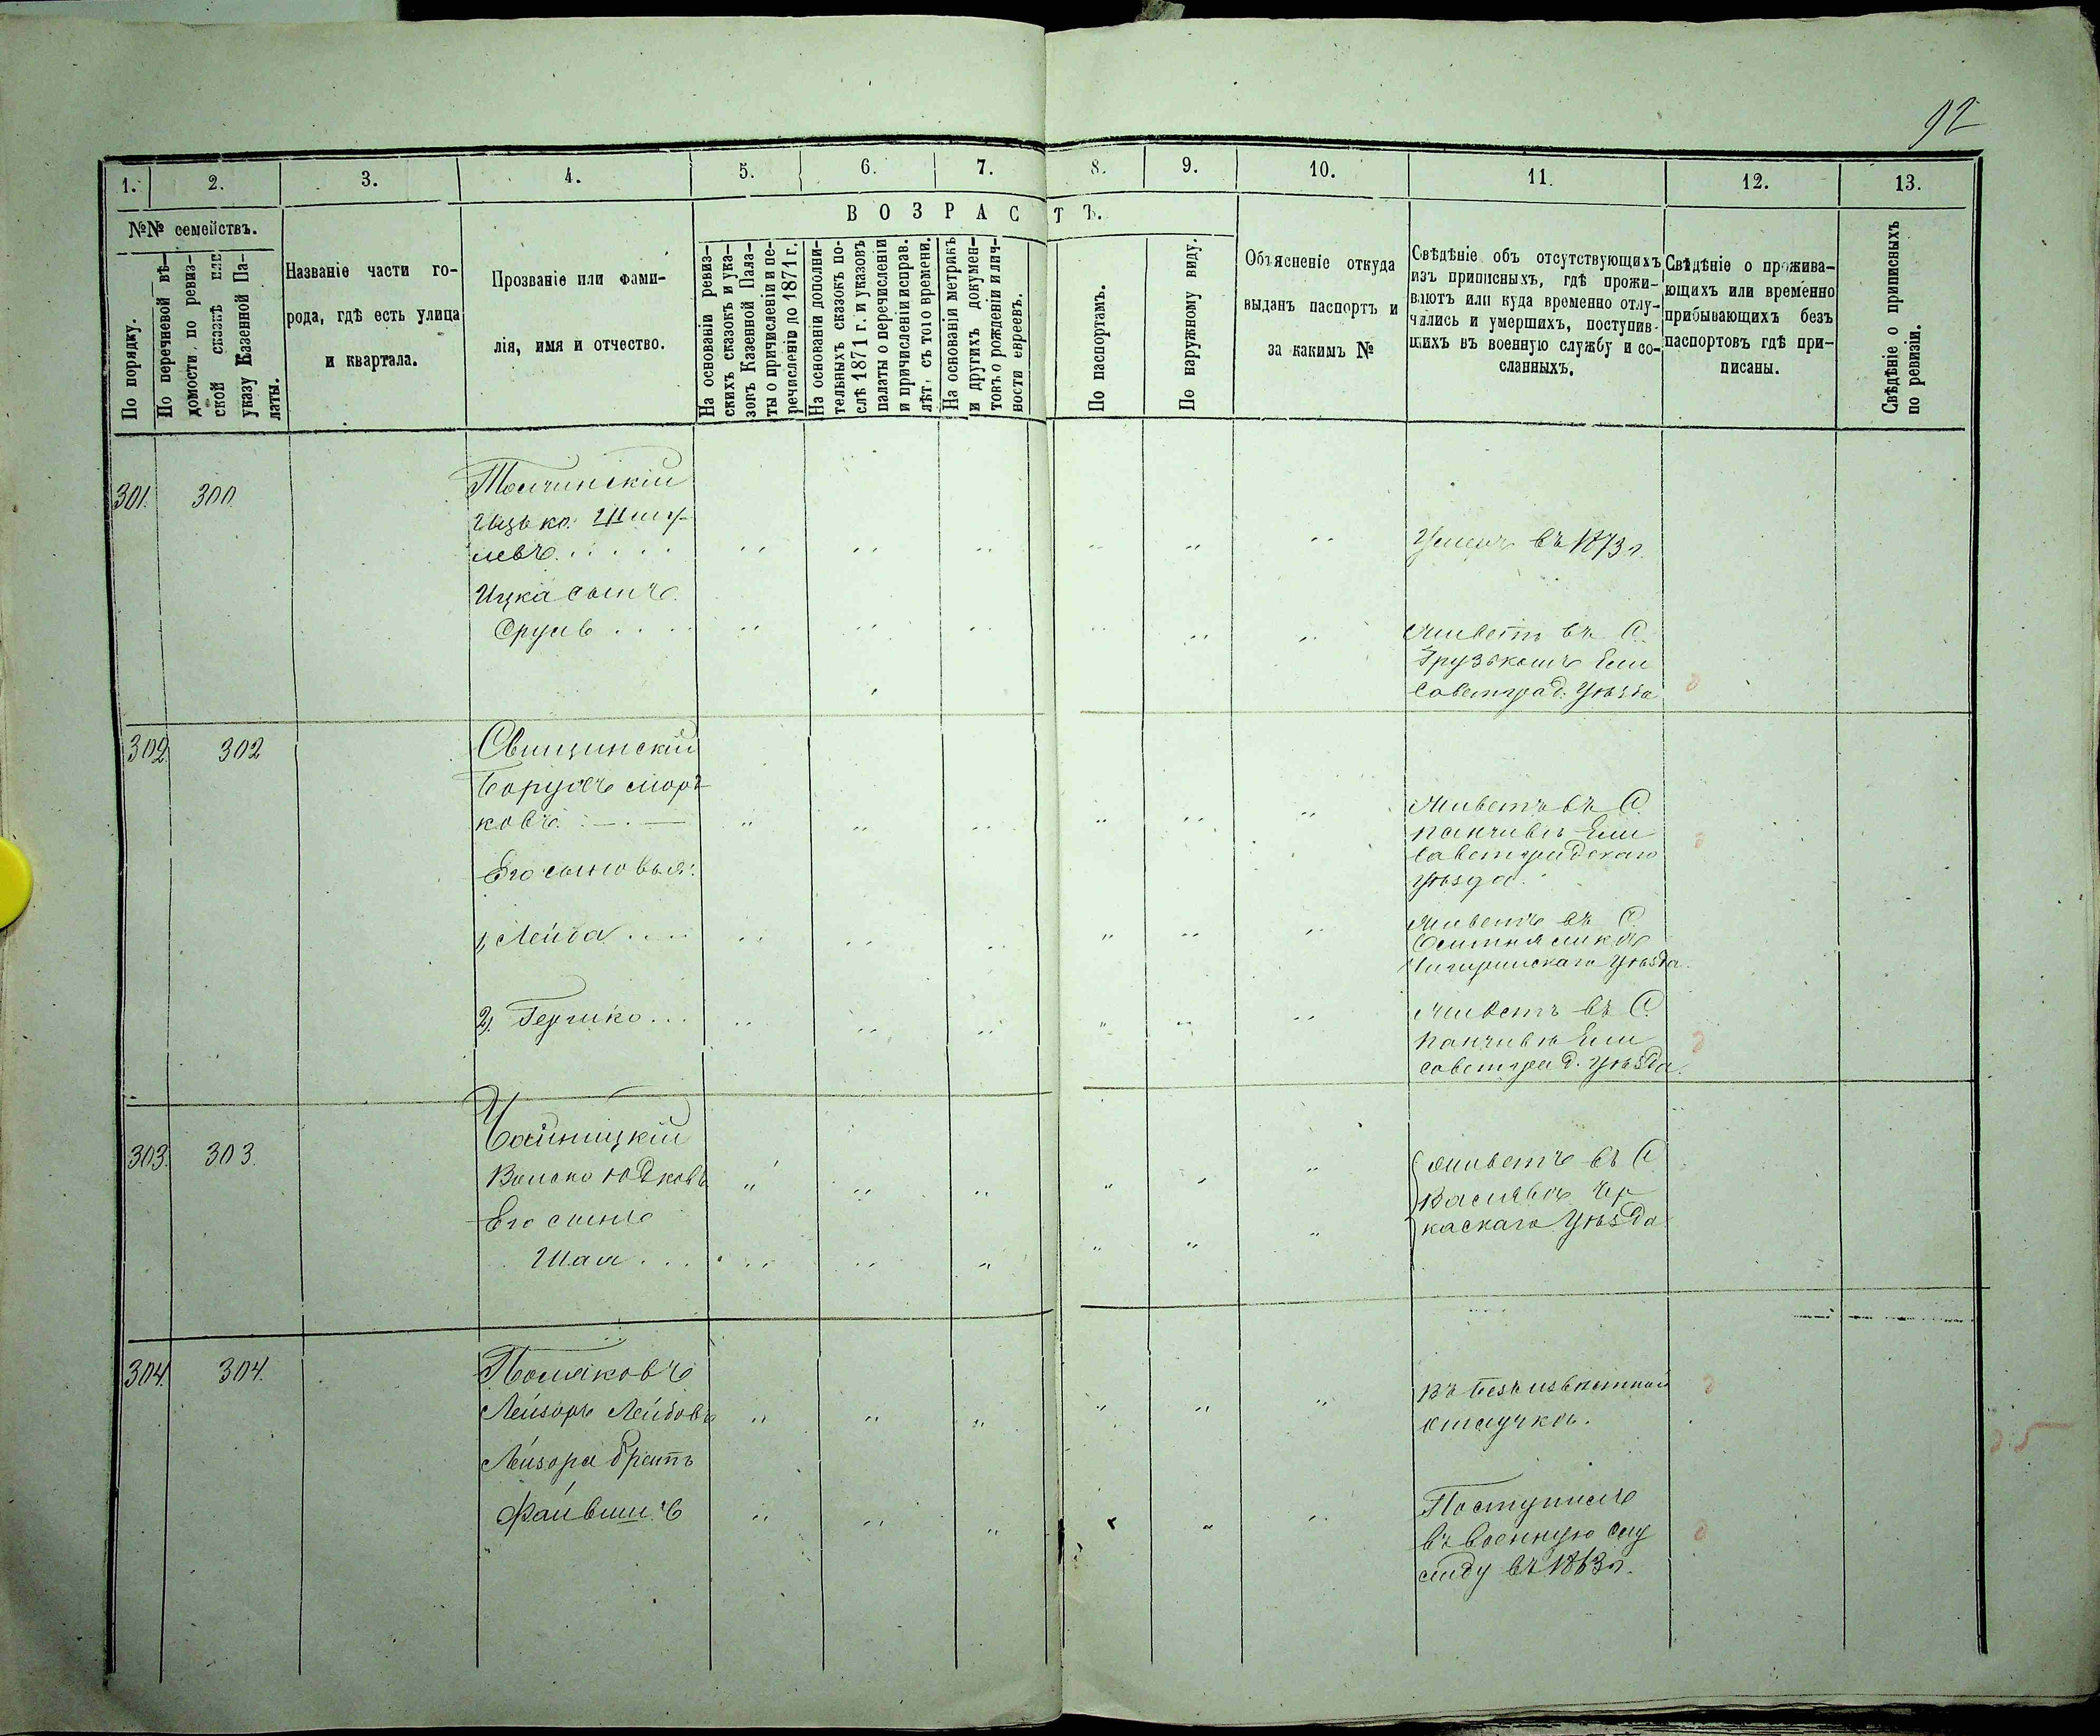 92
1. 2. 3. 4. 5. 6. 7. 8. 9. 10. 11. 12. 13.
№№ семействъ.
По порядку.
По перечневой вѣ-
домости, по ревиз-
ской сказкѣ или
указу Казенной Па-
латы.
Названіе части го-
рода, гдѣ есть улица
и квартала.
Прозваніе или фами-
лія, имя и отчество.
ВОЗРАСТЪ.
На основаніи ревиз-
скихъ сказокъ и ука-
зовъ Казенной Пала-
ты о причисленіи и пе-
речисленію до 1871 г.
На основаніи дополни-
тельныхъ сказокъ по-
слѣ 1871 г. и указовъ
палаты о перечисленіи
и причисленіи исправ.
лѣт, съ того времени.
На основаніи метрикъ
и другихъ докумен-
товъ о рожденіи и лич-
ности евреевъ.
По паспортамъ.
По наружному виду.
Объясненіе откуда
выданъ паспортъ и
за какимъ №
Свѣдѣніе объ отсутствующихъ
изъ приписныхъ, гдѣ прожи-
ваютъ или куда временно отлу-
чились и умершихъ, поступив-
шихъ въ военную службу и со-
сланныхъ.
Свѣдѣніе о прожива-
ющихъ или временно
прибывающихъ безъ
паспортовъ гдѣ при-
писаны.
Свѣдѣніе о приписныхъ
по ревизіи.
301. 300.
Ицько Шму-
левъ
Умеръ въ 1873 г.
Ицка сынъ
Сруль
Живетъ въ С.
Грузькомъ Ели
саветград. Уѣзда
302. 302
Свищинскій
Борухъ Морд
ковъ
Живетъ въ С.
Панчивѣ Ели
саветградскаго
Уѣзда.
Его сыновья:
1, Лейба
Живетъ въ С.
Оситняжкѣ
Чигиринскаго Уѣзда.
2, Гершко
Живетъ въ С.
Панчивѣ Ели
саветград. Уѣзда.
303. 303.
Волько Юдковъ
Его сынъ
Живетъ въ С.
Васильвѣ Чер
каскаго Уѣзда
304. 304.
Поляковъ
Лейзоръ Лейбовъ
Въ безъизвѣстной
отлучкѣ.
Лейзора братъ
Файвишъ
Поступилъ
въ военную слу
жбу въ 1863 г.